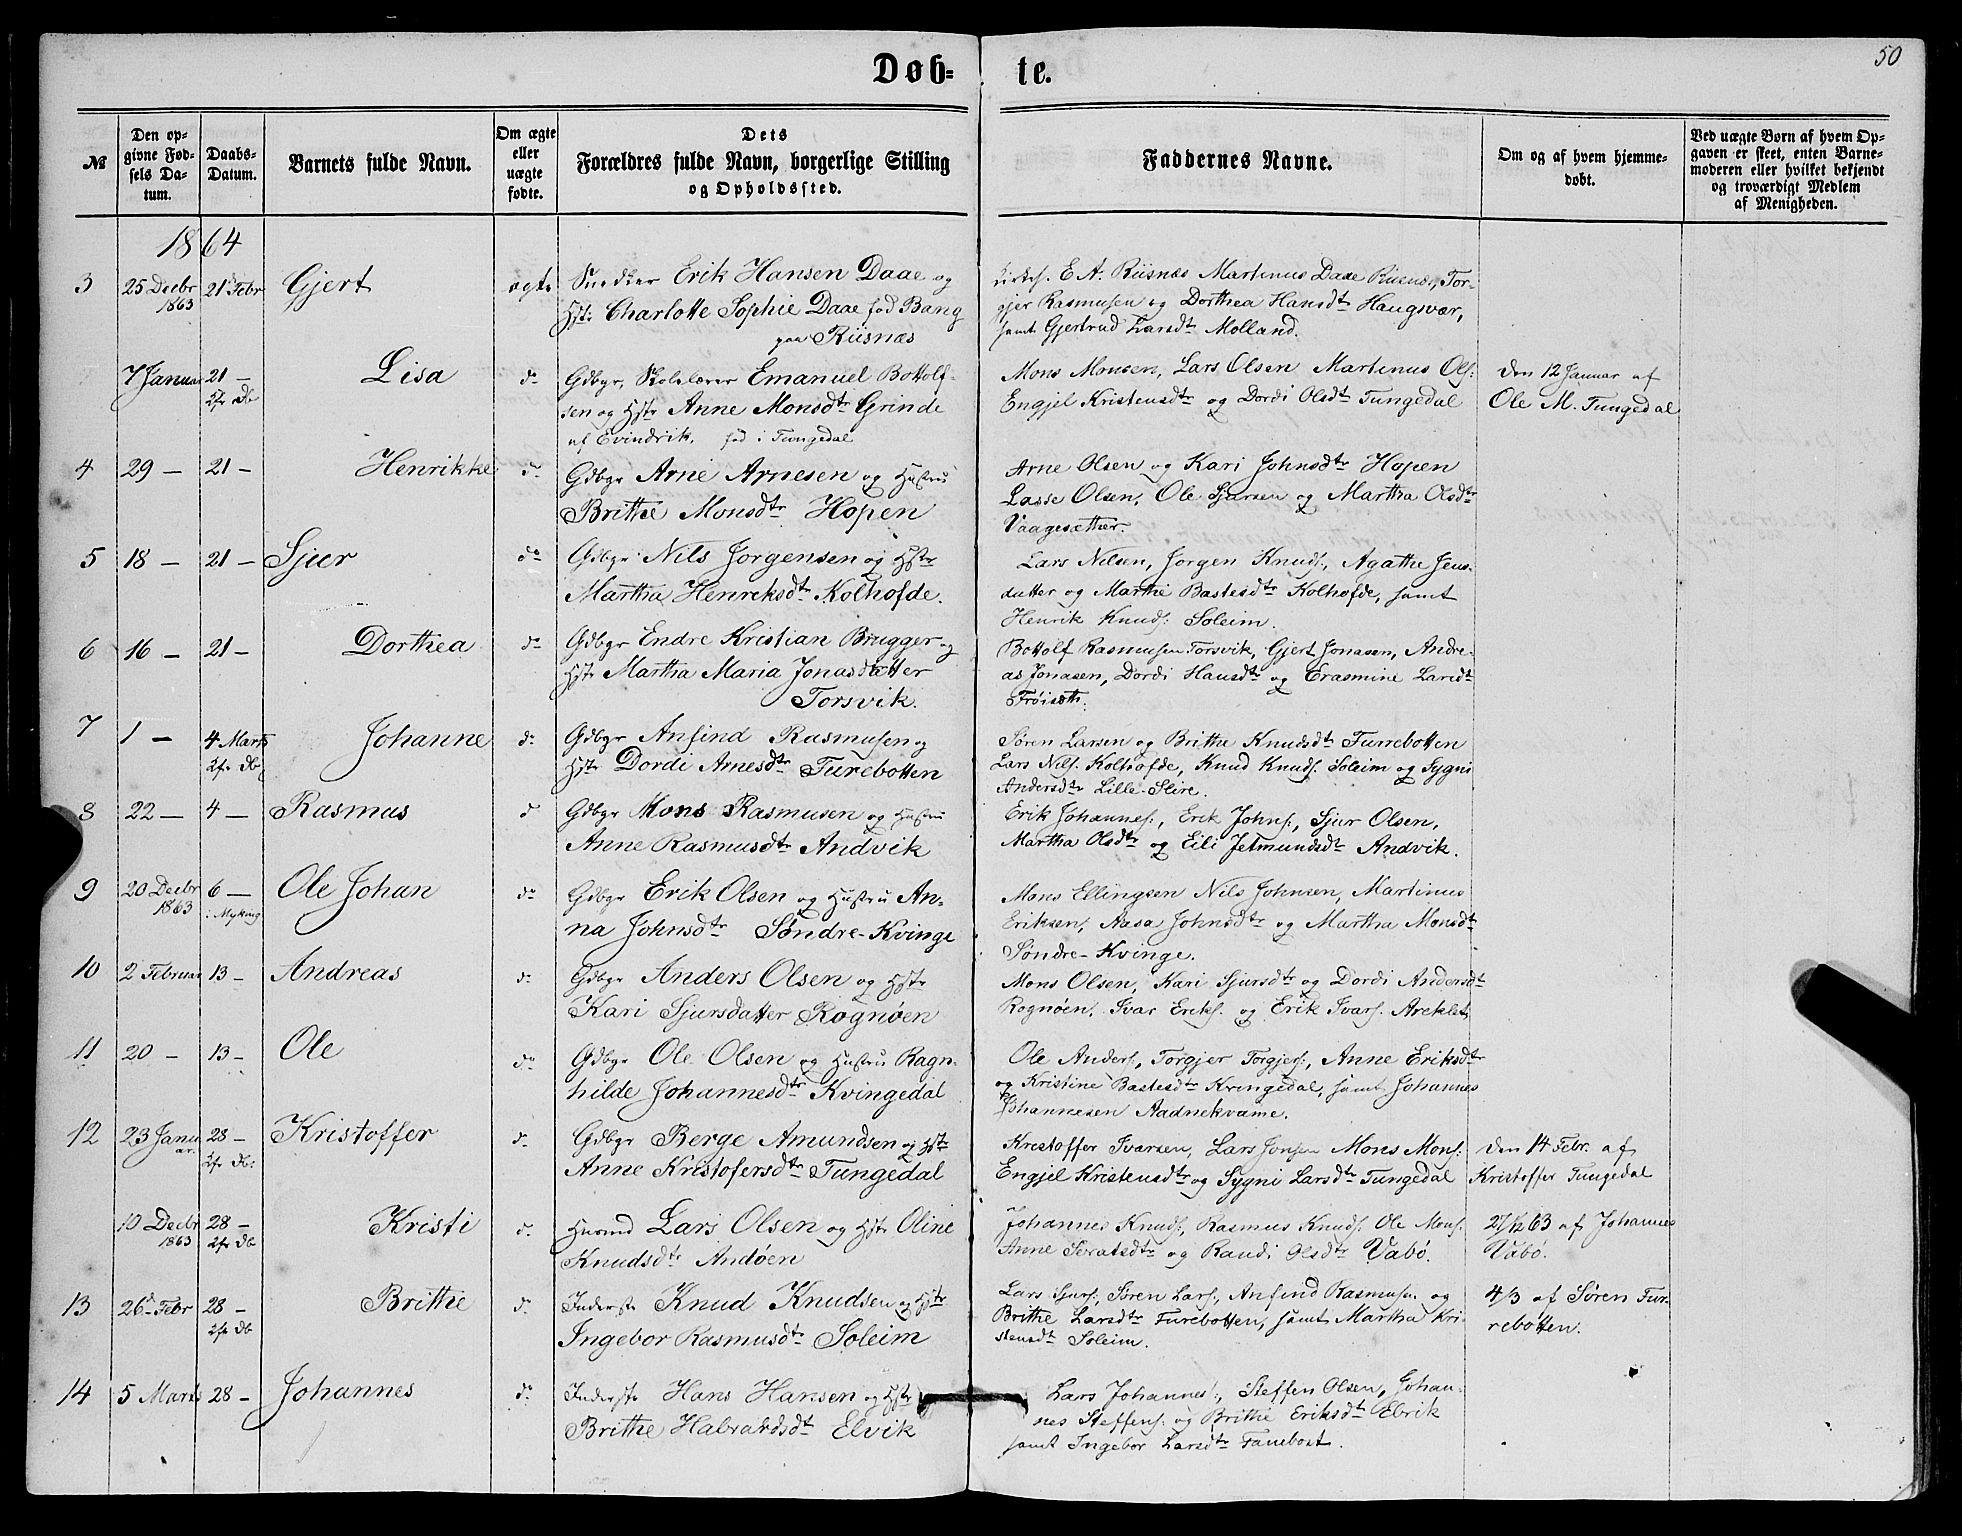 50
Døb- te.
№
Den op-
givne Fød-
sels Da-
tum.
Daabs-
Datum.
Barnets fulde Navn.
Om ægte
eller
uægte
fødte.
Dets
Forældres fulde Navn, borgerlige Stilling
og Opholdssted.
Faddernes Navne.
Om og af hvem hjemme-
døbt.
Ved uægte Børn af hvem Op-
gaven er skeet, enten Barne-
moderen eller hvilket bekjendt
og troværdigt Medlem
af Menigheden.
1864
3 25 Decbr 1863 21 Febr Gjert ægte Snedker Erik Hansen Daae og
Hstr Charlotte Sophie Daae fød Bang
paa Riisnæs
E. A. Riisnæs Martinus Daae Riisnæs, Tor-
gjer Rasmusen og Dorthea Hansdtr Haugsvær,
samt Gjertrud Larsdtr Molland.
7 Januar 21 - Lisa do Gdbgr, Skolelærer Emanuel Bottolf-
sen og Hstr Anne Monsdtr Grinde
af Evindvik. fød i Tungedal
Mons Monsen, Lars Olsen Martinus Ols:
Engjel Kristensdtr og Dordi Olsdtr Tungedal
Den 12 Januar af
Ole M. Tungedal
4 29 - 21 - Henrikke do Gdbgr Arne Arnesen og Hustru
Brithe Monsdtr Hopen
Arne Olsen og Kari Johnsdtr Hopen
Lasse Olsen, Ole Sjursen og Martha Olsdtr
Vaagesæther.
5 18 - 21 - Sjur do Gdbgr Nils Jorgensen og Hstr
Martha Henreksdtr Kolhofde.
Lars Nilsen, Jorgen Knuds:, Agathe Jens-
datter og Marthe Bastesdtr Kolhofde, samt
Henrik Knuds: Soleim.
6 16 - 21 - Dorthea do Gdbgr Endre Kristian Brugger og
Hstr Martha Maria Jonasdatter
Torsvik.
Bottolf Rasmusen Torsvik, Gjert Jonasen, Andre-
as Jonasen, Dordi Hansdtr og Erasmine Larsdtr
Frøisæth.
7 1 - 4 Marts Johanne do Gdbgr Anfind Rasmusen og
Hstr Dordi Arnesdtr Turebotten
Søren Larsen og Brithe Knudsdtr Turrebotten
Lars Nils: Kolhofde, Knud Knuds: Soleim og Sygni
Andersdtr Lille-Slire.
8 22 - 4 - Rasmus do Gdbgr Mons Rasmusen og Hustru
Anne Rasmusdtr Andvik
Erik Johannes:, Erik Johns:, Sjur Olsen,
Martha Olsdtr og Eili Jetmundsdtr Andvik.
9 20 Decbr 1863 6 - i Myking Ole Johan do Gdbgr Erik Olsen og Hustru An-
na Johnsdtr Søndre-Kvinge
Mons Ellingsen Nils Johnsen, Martinus
Eriksen, Aasa Johnsdtr og Martha Monsdtr
Søndre-Kvinge.
10 2 Februar 13 - Andreas do Gdbgr Anders Olsen og Hstr
Kari Sjursdatter Rognøen
Mons Olsen, Kari Sjursdtr og Dordi Andersdtr
Rognøen, Ivar Eriks: og Erik Ivars: Areklet
11 20 - 13 - Ole do Gdbgr Ole Olsen og Hustru Ragn-
hilde Johannesdtr Kvingedal
Ole Anders:, Torgjer Torgjers:, Anne Eriksdtr
og Kristine Bastesdtr Kvingedal, samt Johannes
Johannesen Aadnekvame.
12 23 Janu- ar. 28 - Kristoffer do Gdbgr Berge Amundsen og Hstr
Anne Kristofersdtr Tungedal
Krestoffer Ivarsen, Lars Jonsen Mons Mons:
Engjel Kristensdtr og Sygni Larsdtr Tungedal
Den 14 Febr. af
Kristoffer Tungedal
10 Decbr 1863 28 - Kristi do Husmd Lars Olsen og Hstr Oline
Knudsdtr Andøen
Johannes Knuds:, Rasmus Knuds: Ole Mons:
Anne Seratsdtr og Randi Olsdtr Vabø.
27/12 63 af Johannes
Vabø.
13 26 Febr 28 - Brithe do Inderste Knud Knudsen og Hstr
Ingebor Rasmusdtr Soleim
Lars Sjurs:, Søren Lars:, Anfind Rasmusen og
Brithe Larsdtr Turebotten, samt Martha Kri-
stensdtr Soleim.
4/3 af Søren Tur-
rebotten.
14 5 Marts 28 - Johannes do Inderste Hans Hansen og Hstr
Brithe Halvardsdtr Elvik
Lars Johannes:, Steffen Olsen, Johan-
nes Steffens: og Brithe Eriksdtr Elvik
samt Ingebor Larsdtr Fanebost.